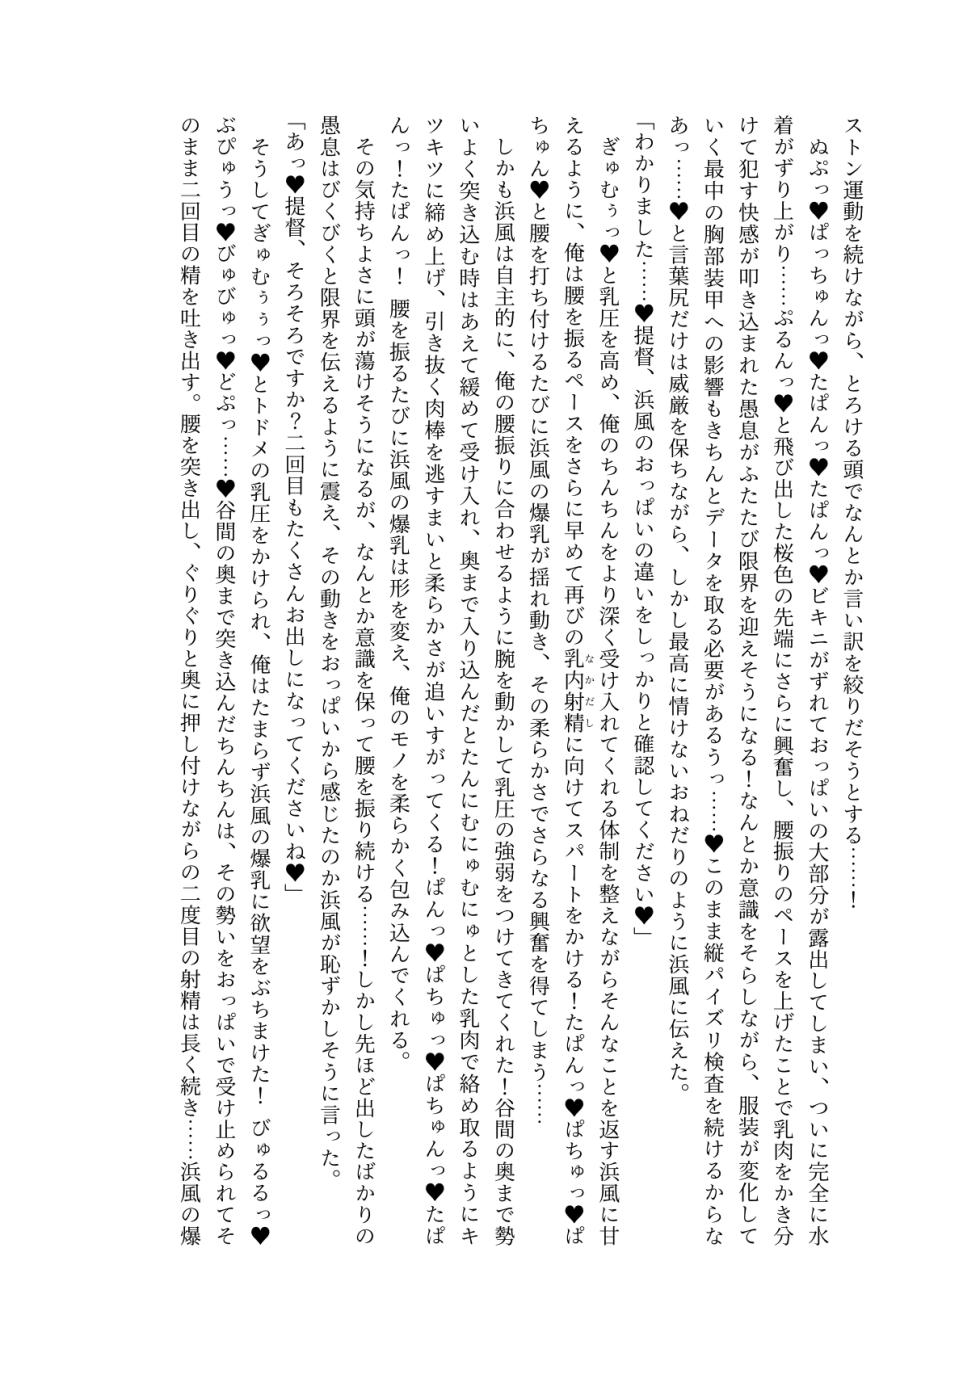 ストン運動を続けながら、とろける頭でなんとか言い訳を絞りだそうとする……！
　ぬぷっ♥ぱっちゅんっ♥たぱんっ♥たぱんっ♥ビキニがずれておっぱいの大部分が露出してしまい、ついに完全に水
着がずり上がり……ぷるんっ♥と飛び出した桜色の先端にさらに興奮し、腰振りのペースを上げたことで乳肉をかき分
けて犯す快感が叩き込まれた愚息がふたたび限界を迎えそうになる！なんとか意識をそらしながら、服装が変化して
いく最中の胸部装甲への影響もきちんとデータを取る必要があるうっ……♥このまま縦パイズリ検査を続けるからな
あっ……♥と言葉尻だけは威厳を保ちながら、しかし最高に情けないおねだりのように浜風に伝えた。
「わかりました……♥提督、浜風のおっぱいの違いをしっかりと確認してください♥」
　ぎゅむぅっ♥と乳圧を高め、俺のちんちんをより深く受け入れてくれる体制を整えながらそんなことを返す浜風に甘
えるように、俺は腰を振るペースをさらに早めて再びの乳内射精なかだしに向けてスパートをかける！たぱんっ♥ぱちゅっ♥ぱ
ちゅん♥と腰を打ち付けるたびに浜風の爆乳が揺れ動き、その柔らかさでさらなる興奮を得てしまう……
　しかも浜風は自主的に、俺の腰振りに合わせるように腕を動かして乳圧の強弱をつけてきてくれた！谷間の奥まで勢
いよく突き込む時はあえて緩めて受け入れ、奥まで入り込んだとたんにむにゅむにゅとした乳肉で絡め取るようにキ
ツキツに締め上げ、引き抜く肉棒を逃すまいと柔らかさが追いすがってくる！ぱんっ♥ぱちゅっ♥ぱちゅんっ♥たぱ
んっ！たぱんっ！　腰を振るたびに浜風の爆乳は形を変え、俺のモノを柔らかく包み込んでくれる。
　その気持ちよさに頭が蕩けそうになるが、なんとか意識を保って腰を振り続ける……！しかし先ほど出したばかりの
愚息はびくびくと限界を伝えるように震え、その動きをおっぱいから感じたのか浜風が恥ずかしそうに言った。
「あっ♥提督、そろそろですか？二回目もたくさんお出しになってくださいね♥」
　そうしてぎゅむぅぅっ♥とトドメの乳圧をかけられ、俺はたまらず浜風の爆乳に欲望をぶちまけた！　びゅるるっ♥
ぶぴゅうっ♥びゅびゅっ♥どぷっ……♥谷間の奥まで突き込んだちんちんは、その勢いをおっぱいで受け止められてそ
のまま二回目の精を吐き出す。腰を突き出し、ぐりぐりと奥に押し付けながらの二度目の射精は長く続き……浜風の爆